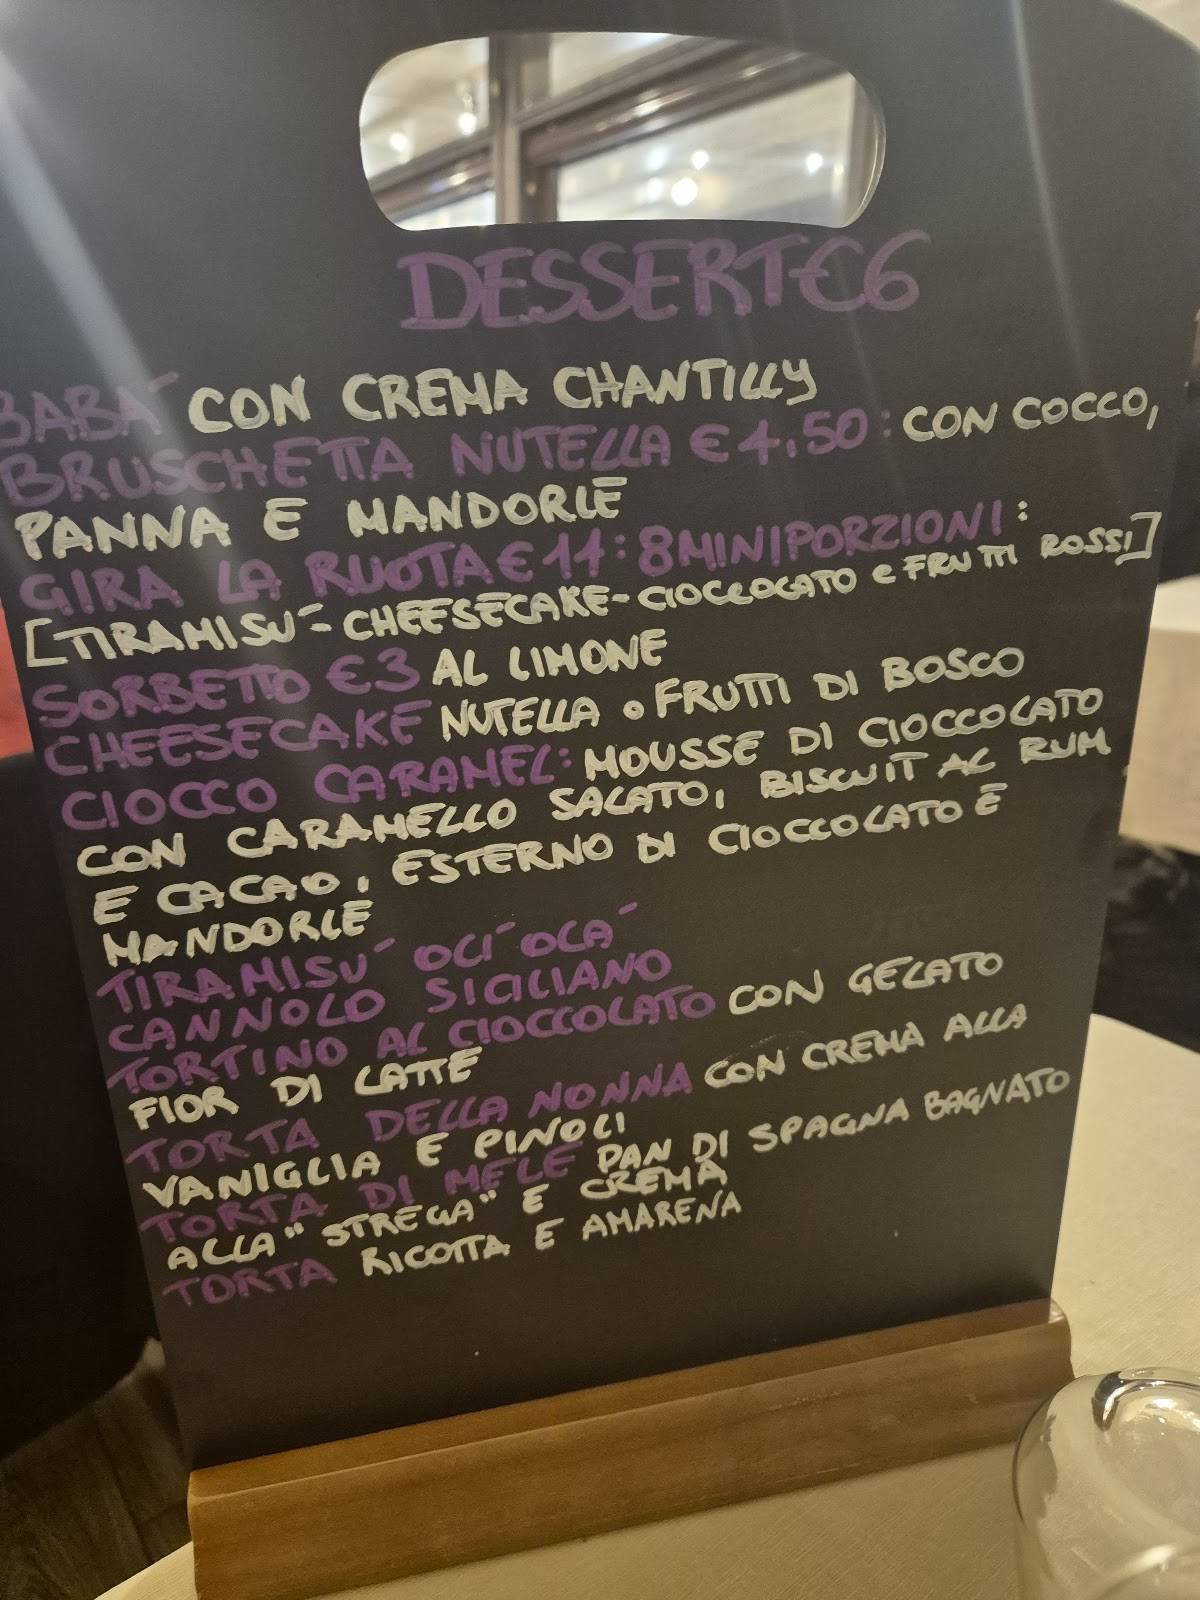 DESSERT €6
BABÁ CON CREMA CHANTILLY
BRUSCHETTA NUTELLA € 4,50: CON COCCO,
PANNA E MANDORLE
GIRA LA RUOTA € 11: 8 MINIPORZIONI:
[TIRAMISÚ - CHEESECAKE - CIOCCOCATO e FRUTTI ROSSI]
SORBETTO €3 AL LIMONE
CHEESECAKE NUTELLA o FRUTTI DI BOSCO
CIOCCO CARAMEL: MOUSSE DI CIOCCOLATO
CON CARAMELLO SALATO, BISCUIT AL RUM
E CACAO, ESTERNO DI CIOCCOLATO E
MANDORLE
TIRAMISÚ OCÍ OCÁ
CANNOLO SICILIANO
TORTINO AL CIOCCOLATO CON GELATO
FIOR DI LATTE
TORTA DELLA NONNA CON CREMA ALLA
VANIGLIA E PINOLI
TORTA DI MELE PAN DI SPAGNA BAGNATO
ALLA "STREGA" E CREMA
TORTA RICOTTA E AMARENA